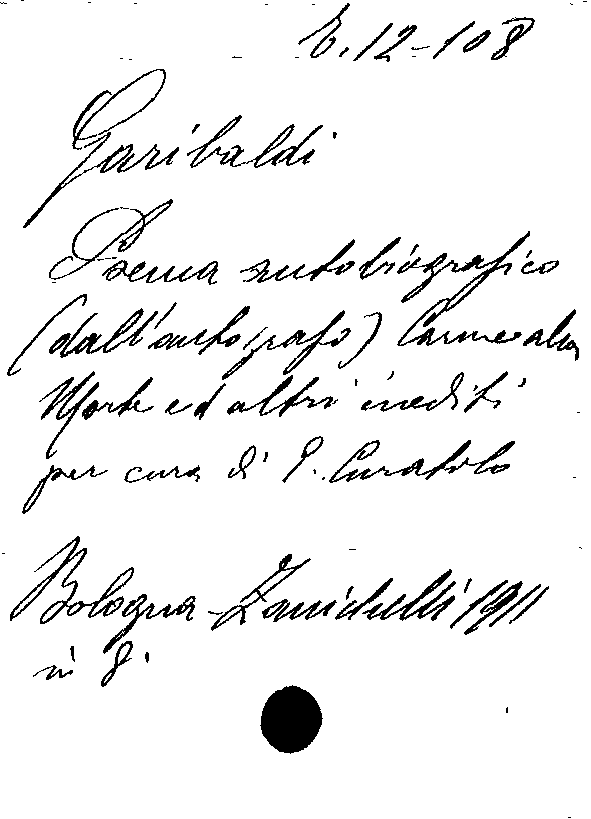 E.12-108
Garibaldi
Poema autobiografico
(dall'autografo) Carme alla
Morte ed altri inediti
per cura di G. Curatolo
Bologna-Zanichelli 1911
in 8.